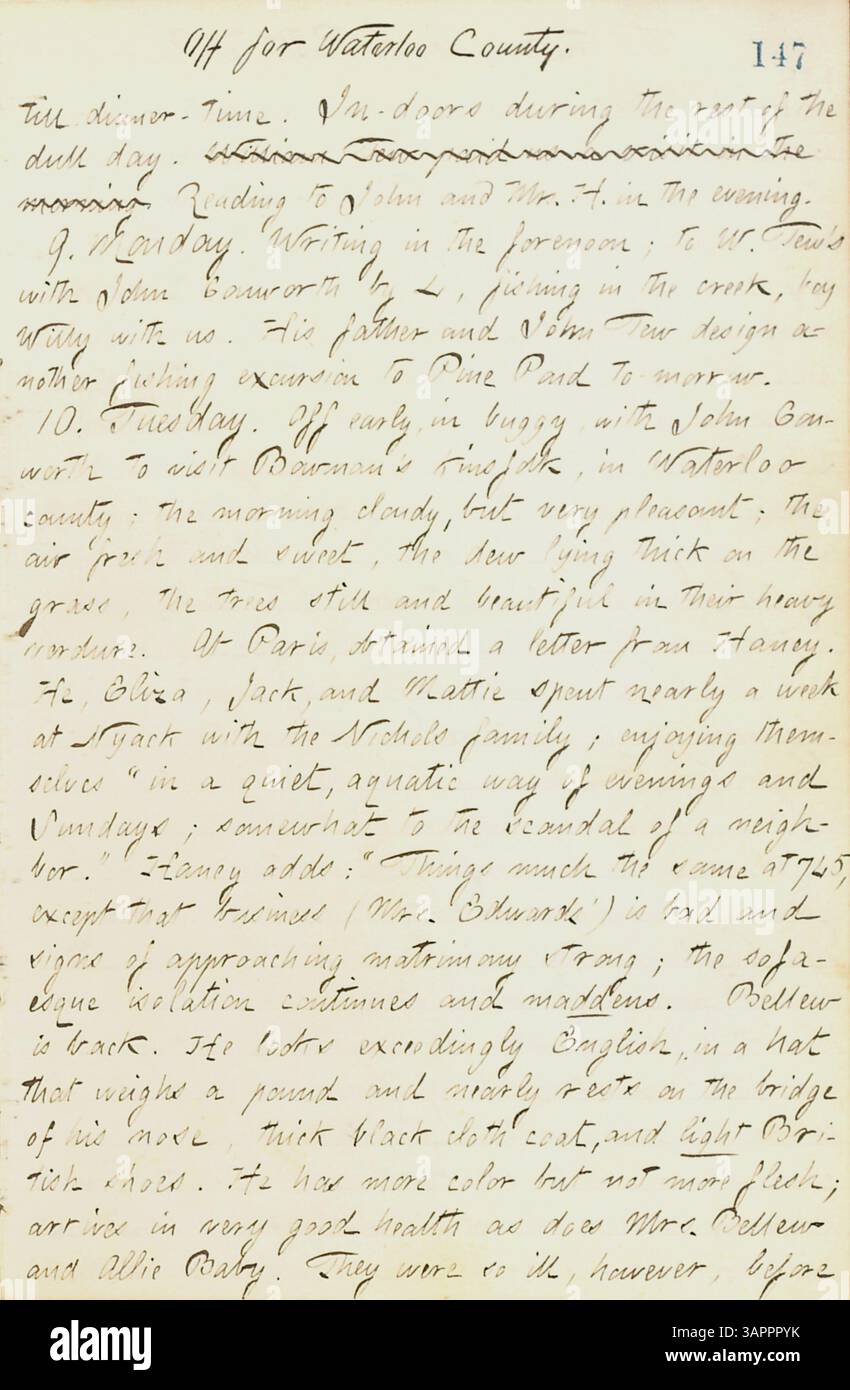 Off for Waterloo County.
147
till dinner-time. In-doors during the rest of the
dull day. William Tew paid us a visit in the
morning. Reading to John and Mr. H. in the evening.
9. Monday. Writing in the forenoon; to W. Tew's
with John Conworth by 4, fishing in the creek, boy
Willy with us. His father and John Tew design a-
nother fishing excursion to Pine Pond to-morrow.
10. Tuesday. Off early, in buggy, with John Con-
worth to visit Bowman's kinsfolk, in Waterloo
county; the morning cloudy, but very pleasant; the
air fresh and sweet, the dew lying thick on the
grass, the trees still and beautiful in their heavy
verdure. At Paris, obtained a letter from Haney.
He, Eliza, Jack, and Mattie spent nearly a week
at Nyack with the Nichols family; enjoying them-
selves "in a quiet, aquatic way of evenings and
Sundays; somewhat to the scandal of a neigh-
bor." Haney adds: "Things much the same at 745,
except that business (Mrs. Edwards') is bad and
signs of approaching matrimony strong; the sofa-
esque isolation continues and maddens. Bellew
is back. He looks exceedingly English, in a hat
that weighs a pound and nearly rests on the bridge
of his nose, thick black cloth coat, and light Bri-
tish shoes. He has more color but not more flesh;
arrives in very good health as does Mrs. Bellew
and Allie Baby. They were so ill, however, before
alamy
Image ID: 3APPPYK
www.alamy.com